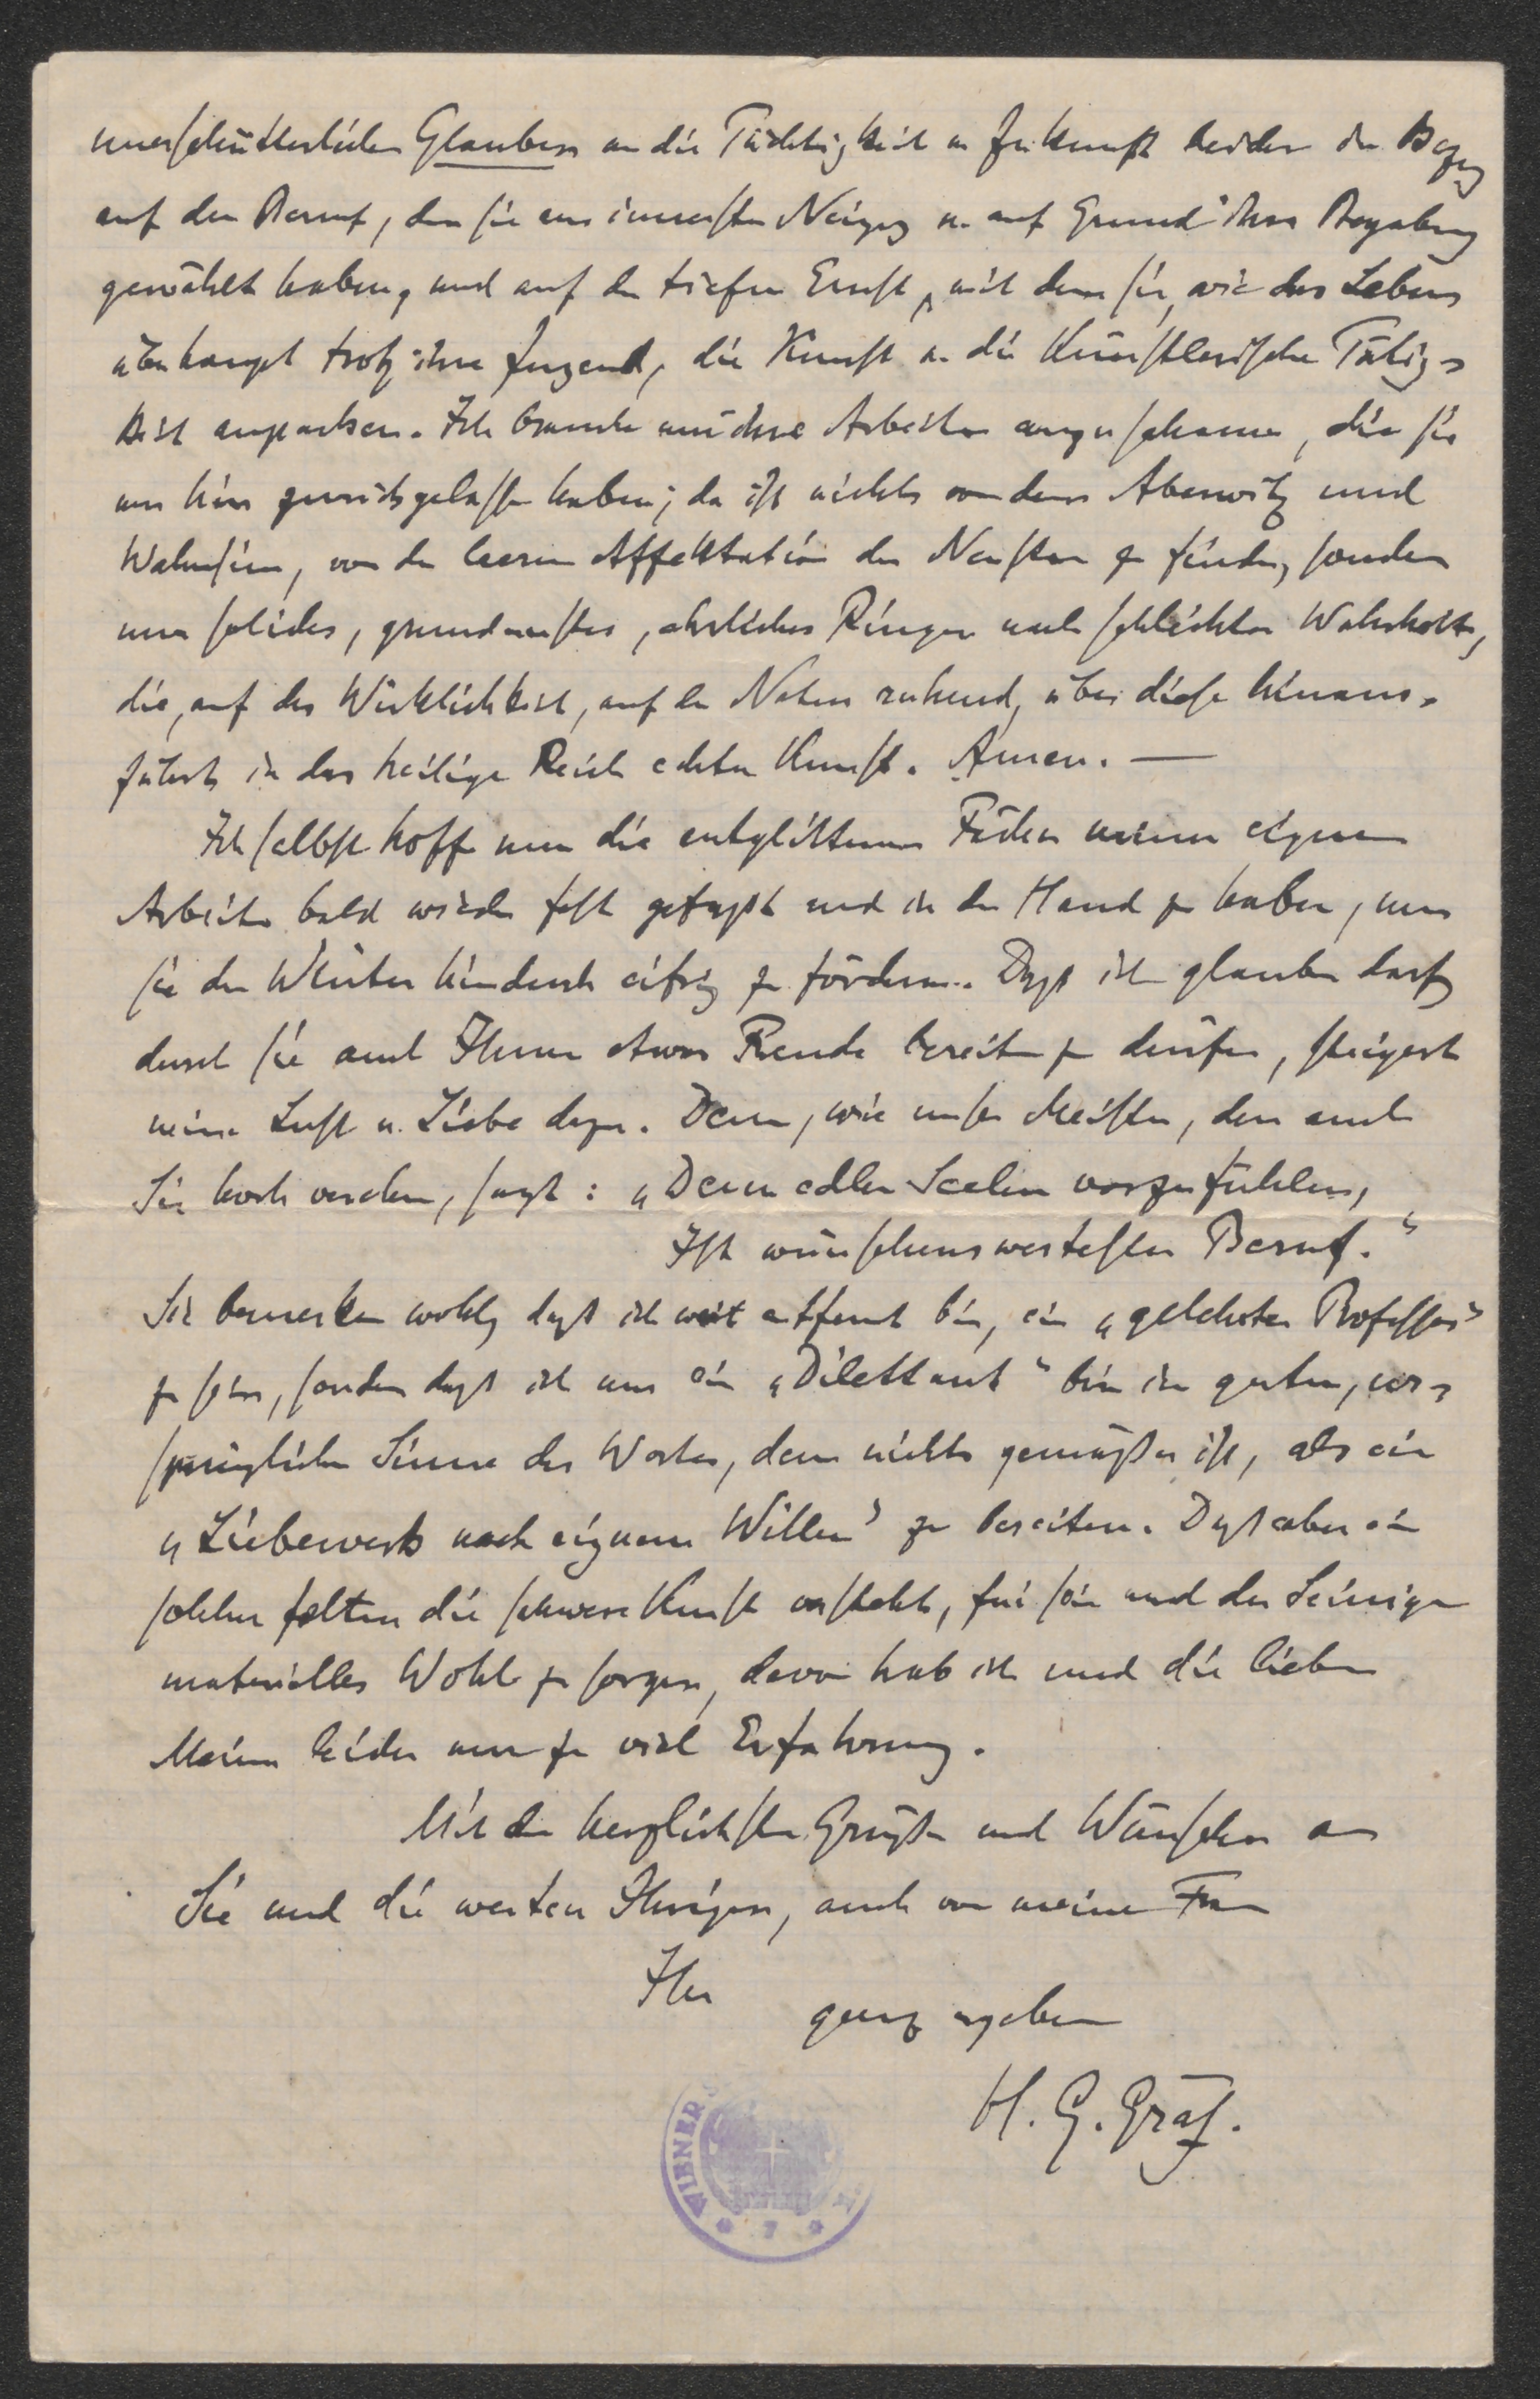 unerschütterlichen Glauben an die Tüchtigkeit u. Zukunft beider in Bezug
auf den Beruf, den sie aus innerster Neigung u. auf Grund ihrer Begabung
gewählt haben, und auf den tiefen Ernst, mit dem sie, wie das Leben
überhaupt trotz ihrer Jugend, die Kunst u. die künstlerische Tätig-
keit anpacken. Ich brauche nur ihre Arbeiten anzuschauen, die sie
uns hier zurückgelassen haben; da ist nichts von dem Aberwitz und
Wahnsinn, von der leeren Affektation der Neusten zu finden, sondern
nur solides, grundernstes, ehrliches Ringen nach schlichter Wahrheit,
die, auf der Wirklichkeit, auf der Natur ruhend, über diese hinaus-
führt in das heilige Reich echter Kunst. Amen. —
Ich selbst hoffe nun die entglittenen Fäden meiner eignen
Arbeiten bald wieder fest gefaßt und in der Hand zu haben, um
sie den Winter hindurch eifrig zu fördern. Daß ich glauben darf,
durch sie auch Ihnen etwas Freude bereiten zu dürfen, steigert
meine Lust u. Liebe dazu. Denn, wie unser Meister, den auch
Sie hoch verehren, sagt: „Denn edlen Seelen vorzufühlen,
Ist wünschenswertester Beruf.“
Sie bemerken wohl, daß ich weit entfernt bin, ein „gelehrter Professor“
zu sein, sondern daß ich nur ein „Dilettant“ bin im guten, ur-
sprünglichen Sinne des Wortes, dem nichts gemäßer ist, als ein
„Liebewerk nach eignem Willen“ zu bereiten. Daß aber ein
solcher selten die schwere Kunst versteht, für sein und der Seinigen
materielles Wohl zu sorgen, davon hab ich und die lieben
Meinen leider nur zu viel Erfahrung.
Mit den herzlichsten Grüßen und Wünschen an
Sie und die werten Ihrigen, auch von meiner Frau
Ihr
ganz ergebener
H. G. Gräf.
WIENER
* 7 *